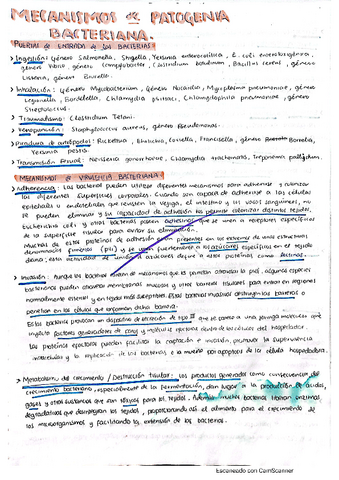 MECANISMOS de PATOGENIA
BACTERIANA.
PUERTAS DE ENTRADA DE LAS BACTERIAS
> Ingestión: Género Salmonella, Shigella, Yersinia enterocolitica, E. coli enterotoxigénica,
género Vibrio, género Campylobacter, Clostridium botulinum, Bacillus cereus, género
Listeria, género Brucella.
> Inhalación: Género Mycobacterium, género Nocardia, Mycoplasma pneumoniae, género
Legionella, Bordetella, Chlamydia psittaci, Chlamydophila pneumoniae, género
Streptococcus.
> Traumatismo: Clostridium Tetani.
> Staphylococcus aureus, género Pseudomonas.
> Picadura de artrópodos: Rickettsia, Ehrlichia, Coxiella, Francisella, género Borrelia,
Yersinia pestis.
> Transmisión Sexual: Neisseria gonorrhoeae, Chlamydia trachomatis, Treponema pallidum.
MECANISMOS DE VIRULENCIA BACTERIANA:
> Adherencia: Las bacterias pueden utilizar diferentes mecanismos para adherirse y colonizar
las diferentes superficies corporales. Cuando son capaces de adherirse a las células
epiteliales o endoteliales que revisten la vejiga, el intestino y los vasos sanguíneos, no
se pueden eliminar y su capacidad de adhesión les permite colonizar distintos tejidos.
Escherichia coli y otras bacterias poseen adhesinas que se unen a receptores específicos
de la superficie tisular para evitar su eliminación.
Muchas de estas proteínas de adhesión están presentes en los extremos de unas estructuras
denominadas fimbrias (pili) y se unen fuertemente a azúcares específicos en el tejido
diana; esta actividad de unión a azúcares define a estas proteínas como lectinas.
> Invasión: Aunque las bacterias carecen de mecanismos que les permitan atravesar la piel, algunas especies
bacterianas pueden atravesar membranas mucosas y otras barreras tisulares para entrar en regiones
normalmente estériles y en tejidos más susceptibles. Estas bacterias invasivas destruyen la barrera o
penetran en las células que componen dicha barrera.
Estas bacterias producen un dispositivo de secreción de tipo III que se parece a una jeringa molecular que
inyecta factores generadores de poros y moléculas efectoras dentro de las células del hospedador.
Las proteínas efectoras pueden facilitar la captación e invasión, promover la supervivencia
intracelular y la replicación de las bacterias o la muerte por apoptosis de la célula hospedadora.
> Metabolitos del crecimiento / Destrucción tisular: Los productos generados como consecuencia del
crecimiento bacteriano, especialmente de la fermentación, dan lugar a la producción de ácidos,
gases y otras sustancias que son tóxicas para los tejidos. Además, muchas bacterias liberan enzimas
degradativas que desintegran los tejidos, proporcionando así el alimento para el crecimiento de
los microorganismos y facilitando la extensión de las bacterias.
Escaneado con CamScanner